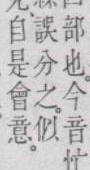 部也。今音
誤分之。似
自是會意。